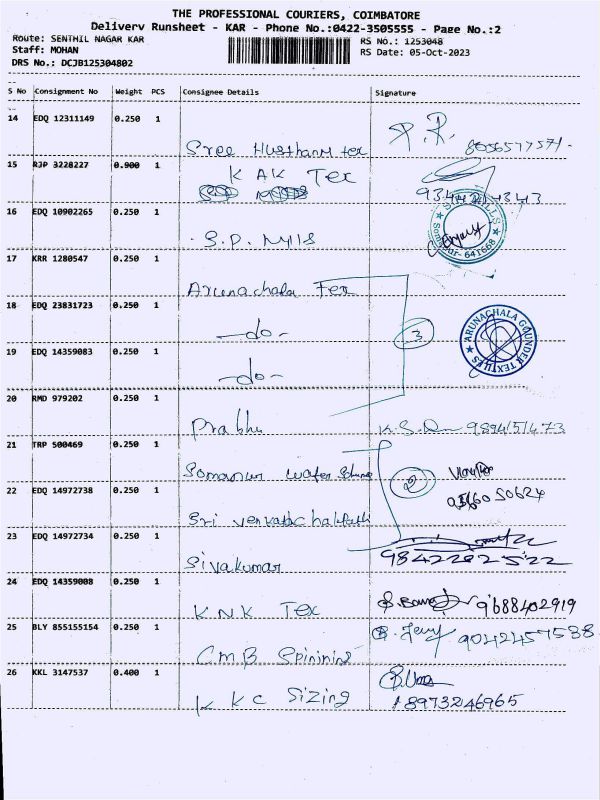 THE PROFESSIONAL COURIERS, COIMBATORE
Delivery Runsheet - KAR - Phone No.:0422-3505555 - Page No.:2
Route: SENTHIL NAGAR KAR
RS No.: 1253048
Staff: MOHAN
RS Date: 05-Oct-2023
DRS No.: DCJB125304802
S No Consignment No Weight PCS Consignee Details Signature
14 EDQ 12311149 0.250 1
Sree Husthanm tex 8056577571-
15 RJP 3228227 0.900 1
KAK Tex
16 EDQ 10902265 0.250 1
S.P. Mills
Somanur- 641668
17 KRR 1280547 0.250 1
Arunachala Tex
18 EDQ 23831723 0.250 1
-do- 3
ARUNACHALA GOUNDER TEXTILES
19 EDQ 14359083 0.250 1
-do-
20 RMD 979202 0.250 1
Prabhu
21 TRP 500469 0.250 1
Somanur water
22 EDQ 14972738 0.250 1
2
Sri venkatachalapathi
23 EDQ 14972734 0.250 1
Sivakumar 9842282522
24 EDQ 14359008 0.250 1
KNK Tex 9688402919
25 BLY 855155154 0.250 1
9042457538
C.M.B Spinining
26 KKL 3147537 0.400 1
K K C Sizing 8973246965